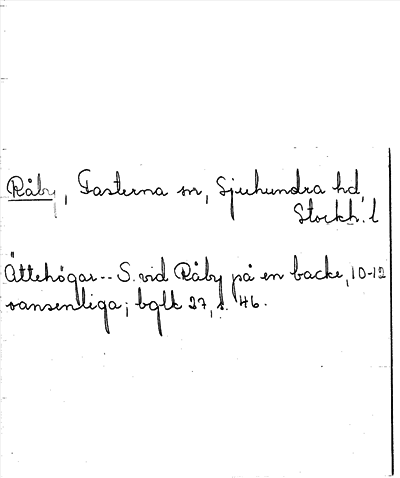 Råby, Fasterna sn, Sjuhundra hd,
Stockh. l
Ättehögar -- S. vid Råby på en backe, 10-12
oansenliga; bglt 27, s. 46.